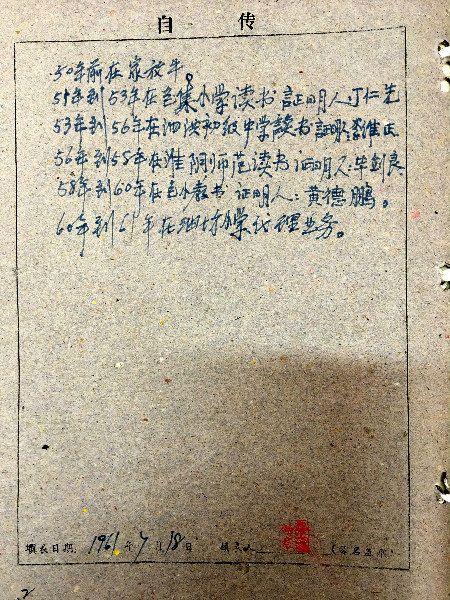 自 传
50年前在家放牛。
51年到53年在色集小学读书 証明人丁仁
53年到56年在泗洪初级中学读书証明 淮正
56年到58年在淮阴师范读书 证明人:毕剑良
58年到60年在 小教书 证明人:黄德鹏。
60年到61年在 学代理业务。
填表日期 1961年7月18日 填表人 (签名盖章)